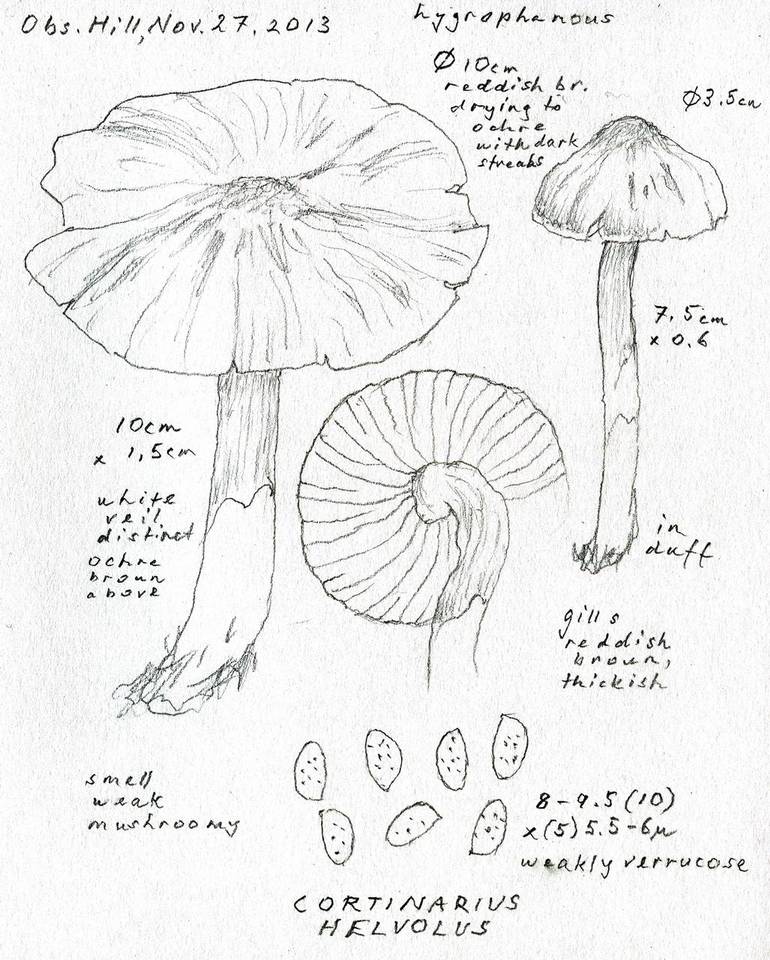 Obs. Hill, Nov. 27. 2013
hygrophanous
Ø 10cm
reddish br.
drying to
ochre
with dark
streaks
Ø3.5cm
7.5cm
x 0.6
10cm
x 1,5cm
white
veil
distinct
ochre
broun
above
in
duff
gills
reddish
broun,
thickish
smell
weak
mushroomy
8-9.5(10)
x(5)5.5-6µ
weakly verrucose
CORTINARIUS
HELVOLUS